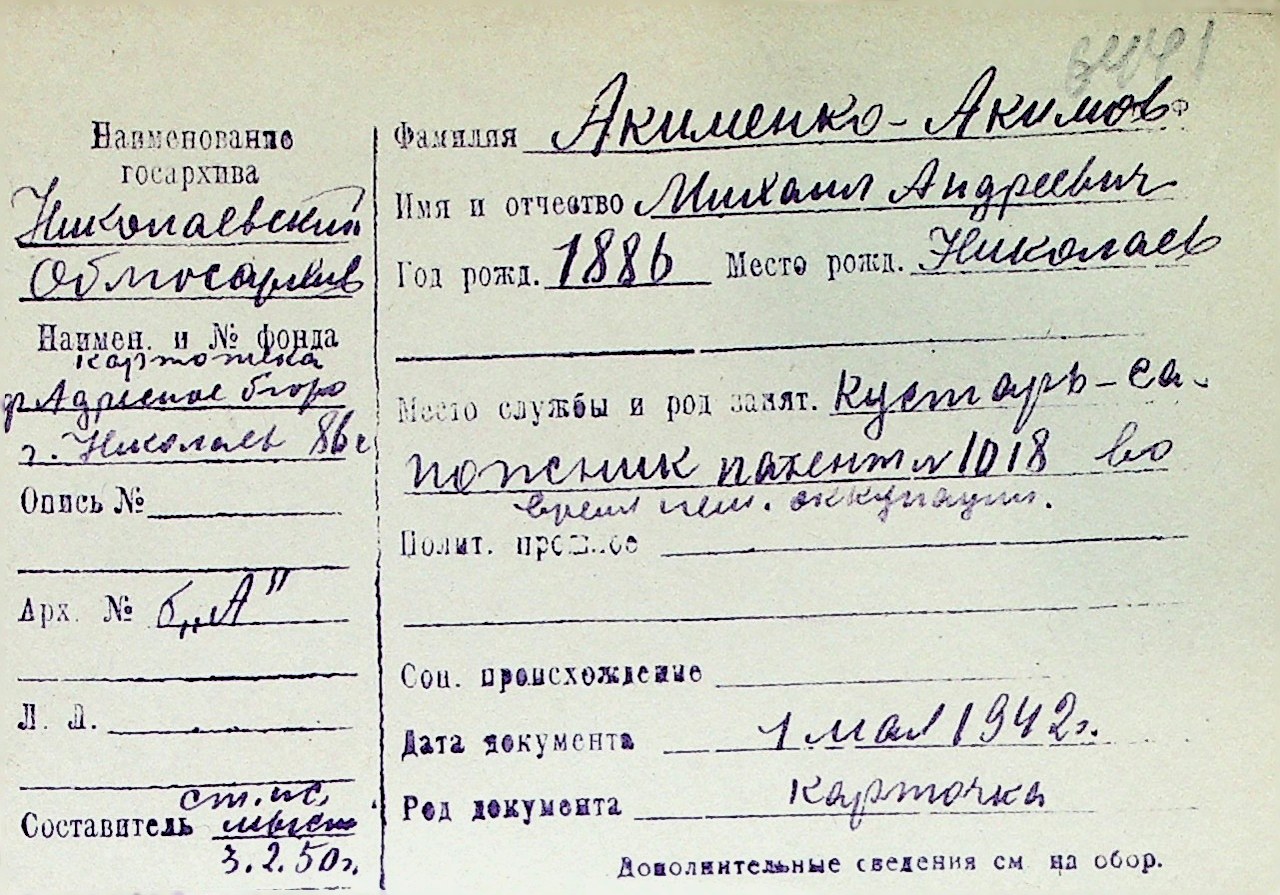 Наименование
госархива
Николаевский
Облгосархив
Наимен. и № фонда
картотека
ф Адресное бюро
г. Николаев
Опись №
Арх. № б„А"
Л. Л.
ст. ис.
Составитель
3.2.50г.
Фамилия Акименко-Акимов
Имя и отчество Михаил Андреевич
Год рожд. 1886 Место рожд. Николаев
Место службы и род занят. Кустарь-са-
пожник патент № 1018 во
время нем. оккупации.
Полит. прошлое
Соц. происхождение
Дата документа 1 мая 1942г.
Род документа карточка
Дополнительные сведения см на обор.